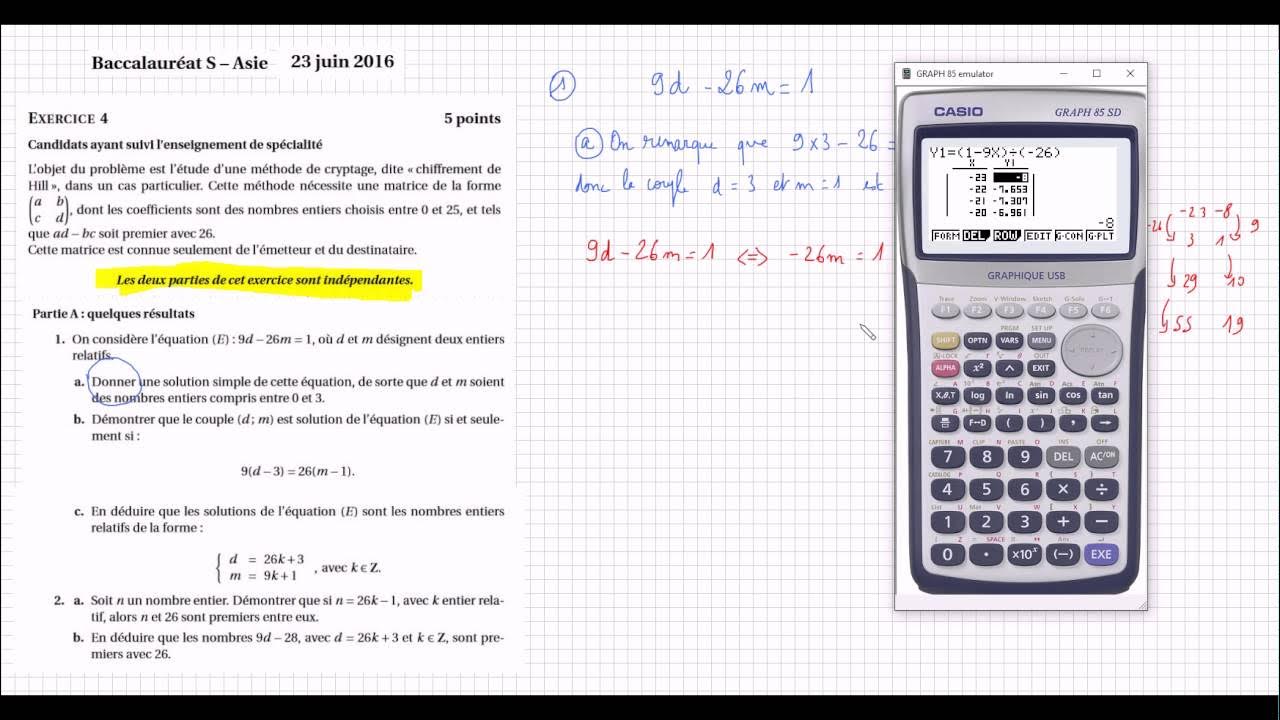 Baccalauréat S – Asie 23 juin 2016
EXERCICE 4 5 points
Candidats ayant suivi l'enseignement de spécialité
L'objet du problème est l'étude d'une méthode de cryptage, dite « chiffrement de
Hill », dans un cas particulier. Cette méthode nécessite une matrice de la forme
(a b
c d), dont les coefficients sont des nombres entiers choisis entre 0 et 25, et tels
que ad – bc soit premier avec 26.
Cette matrice est connue seulement de l'émetteur et du destinataire.
Les deux parties de cet exercice sont indépendantes.
Partie A : quelques résultats
1. On considère l'équation (E) : 9d – 26m = 1, où d et m désignent deux entiers
relatifs.
a. Donner une solution simple de cette équation, de sorte que d et m soient
des nombres entiers compris entre 0 et 3.
b. Démontrer que le couple (d ; m) est solution de l'équation (E) si et seule-
ment si :
9(d – 3) = 26(m – 1).
c. En déduire que les solutions de l'équation (E) sont les nombres entiers
relatifs de la forme :
{ d = 26k + 3
m = 9k + 1 , avec k ∈ Z.
2. a. Soit n un nombre entier. Démontrer que si n = 26k – 1, avec k entier rela-
tif, alors n et 26 sont premiers entre eux.
b. En déduire que les nombres 9d – 28, avec d = 26k + 3 et k ∈ Z, sont pre-
miers avec 26.
① 9d - 26m = 1
ⓐ On remarque que 9 x 3 - 26 =
donc le couple d = 3 et m = 1 est
9d - 26m = 1 <=> -26m = 1
GRAPH 85 emulator
CASIO GRAPH 85 SD
Y1=(1-9X)÷(-26)
X Y1
-23 -8
-22 -7.653
-21 -7.307
-20 -6.961
-8
FORM DEL ROW EDIT G·CON G·PLT
GRAPHIQUE USB
Trace Zoom V-Window Sketch G-Solv G↔T
F1 F2 F3 F4 F5 F6
PRGM SET UP
SHIFT OPTN VARS MENU
A-LOCK QUIT
ALPHA x² ^ EXIT
REPLAY
X,θ,T log ln sin cos tan
F↔D ( ) , →
CAPTURE CLIP PASTE INS OFF
7 8 9 DEL AC/ON
CATALOG
4 5 6 × ÷
List Mat
1 2 3 + −
0 . ×10ˣ (−) EXE
-23 -8
3 1 9
29 10
55 19